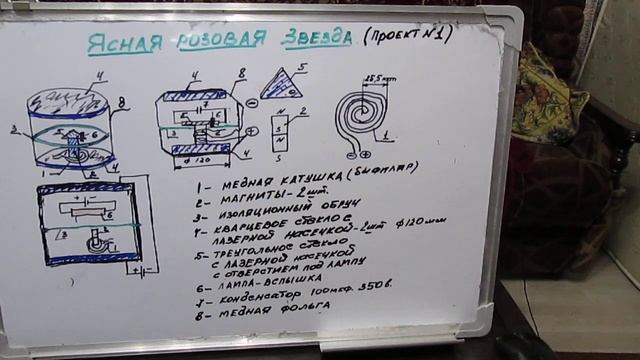 ЯСНАЯ РОЗОВАЯ ЗВЕЗДА (ПРОЕКТ №1)
4
8
3
5
6
1
2
4
4
8
7
6
3
Ф 120
4
5
N
S
N
S
2
25,5 mm
1
6
3
1
1 - МЕДНАЯ КАТУШКА (БИФИЛЯР)
2 - МАГНИТЫ - 2 шт.
3 - ИЗОЛЯЦИОННЫЙ ОБРУЧ
4 - КВАРЦЕВОЕ СТЕКЛО С
ЛАЗЕРНОЙ НАСЕЧКОЙ - 2 шт Ф 120 мм
5 - ТРЕУГОЛЬНОЕ СТЕКЛО
С ЛАЗЕРНОЙ НАСЕЧКОЙ
С ОТВЕРСТИЕМ ПОД ЛАМПУ
6 - ЛАМПА-ВСПЫШКА
7 - КОНДЕНСАТОР 100 мкф. 350 в.
8 - МЕДНАЯ ФОЛЬГА